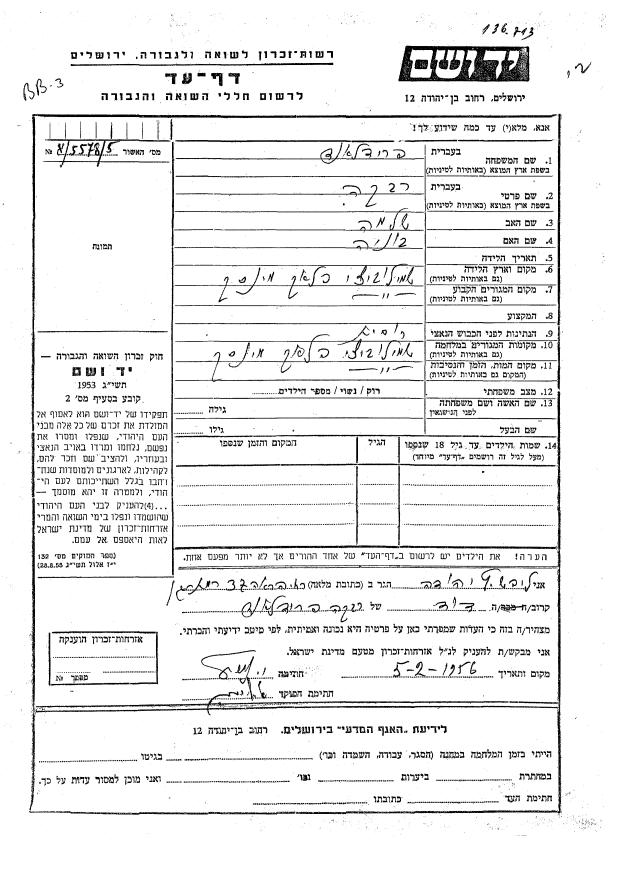 136.713
BB-3
רשות-זכרון לשואה ולגבורה. ירושלים
דף-עד
לרשום חללי השואה והגבורה
יד ושם
ירושלים, רחוב בן-יהודה 12
אנא, מלא(י) עד כמה שידוע לך!
מס׳ האשור 5/5578/א №
תמונה
1. שם המשפחה
בעברית
פרידלאנד
בשפת ארץ המוצא (באותיות לטיניות)
2. שם פרטי
בעברית
רבקה
בשפת ארץ המוצא (באותיות לטיניות)
3. שם האב שלמה
4. שם האם
5. תאריך הלידה
6. מקום וארץ הלידה
(גם באותיות לטיניות)
7. מקום המגורים הקבוע
(גם באותיות לטיניות)
8. המקצוע
9. הנתינות לפני הכבוש הנאצי
10. מקומות המגורים במלחמה
(גם באותיות לטיניות)
11. מקום המות, הזמן והנסיבות
(המקום גם באותיות לטיניות)
12. מצב משפחתי
רוק / נשוי / מספר הילדים
13. שם האשה ושם משפחתה
לפני הנישואין
גילה
שם הבעל
גילו
14. שמות הילדים עד גיל 18 שנספו
(מעל לגיל זה רושמים "דף-עד" מיוחד)
הגיל
המקום והזמן שנספו
חוק זכרון השואה והגבורה —
יד ושם
תשי״ג 1953
קובע בסעיף מס׳ 2
תפקידו של יד-ושם הוא לאסוף אל
המולדת את זכרם של כל אלה מבני
העם היהודי, שנפלו ומסרו את
נפשם, נלחמו ומרדו באויב הנאצי
ובעוזריו, ולהציב שם וזכר להם,
לקהילות, לארגונים ולמוסדות שנח-
רבו בגלל השתייכותם לעם הי-
הודי, ולמטרה זו יהא מוסמך —
...(4) להעניק לבני העם היהודי
שהושמדו ונפלו בימי השואה והמרי
אזרחות-זכרון של מדינת ישראל
לאות היאספם אל עמם.
(ספר החוקים מס׳ 132
י״ז אלול תשי״ג 28.8.53)
הערה! את הילדים יש לרשום ב"דף-העד" של אחד ההורים אך לא יותר מפעם אחת.
אני יהודה הגר ב (כתובת מלאה)
קרוב/ה דוד של רבקה פרידלאנד
מצהיר/ה בזה כי העדות שמסרתי כאן על פרטיה היא נכונה ואמיתית, לפי מיטב ידיעתי והכרתי.
אני מבקש/ת להעניק לנ״ל אזרחות-זכרון מטעם מדינת ישראל.
מקום ותאריך 5-2-1956 חתימה
חתימת הפוקד
אזרחות-זכרון הוענקה
מסמך №
לידיעת "האגף המדעי" בירושלים. רחוב בן-יהודה 12
הייתי בזמן המלחמה במחנה (הסגר, עבודה, השמדה וכו׳) בגיטו
במחתרת ביערות וכו׳ ואני מוכן למסור עדות על כך.
חתימת העד כתובתו